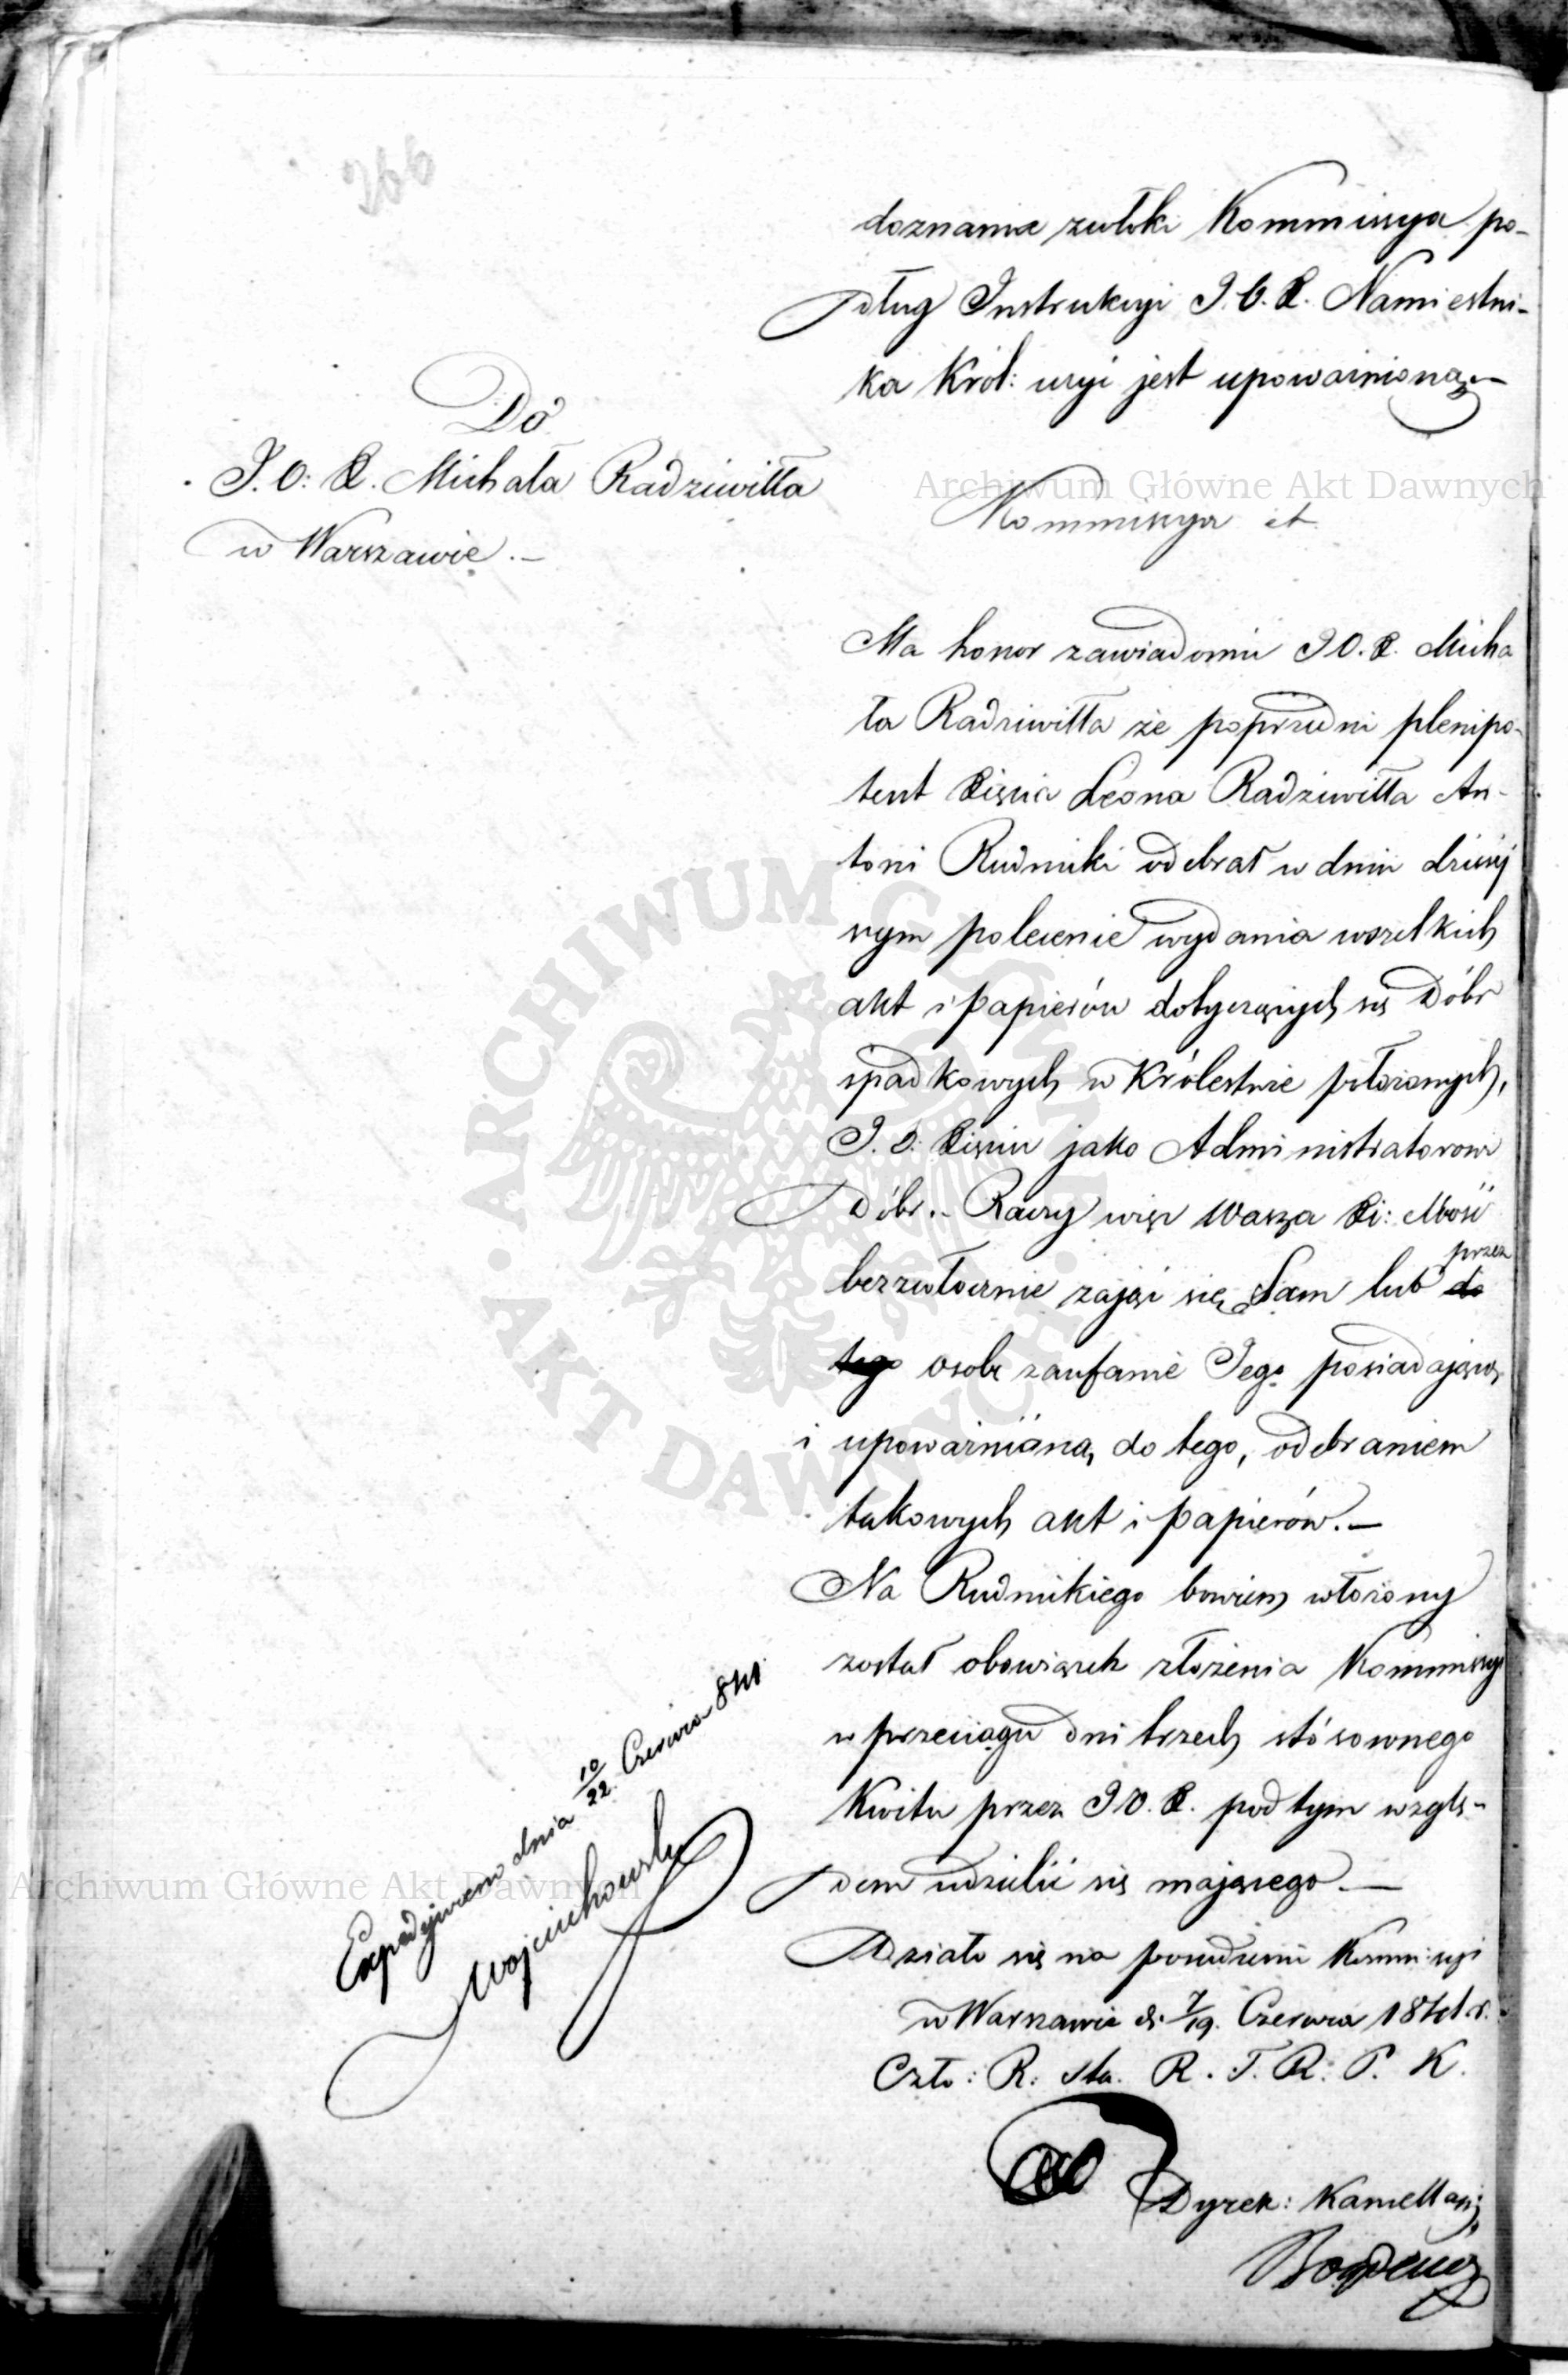 266
doznania zwłoki Kommissya po-
dług Instrukcyi J. O. X. Namiestni-
ka Król: uczyć jest upoważnioną.—
Do
J. O: X. Michała Radziwiłła
w Warszawie.—
Kommissya et
Ma honor zawiadomić J O. X. Micha
ła Radziwiłła że poprzedni plenipo-
tent Xięcia Leona Radziwiłła An-
toni Rudnicki odebrał w dniu dzisiej
szym polecenie wydania wszelkich
akt i papierów dotyczących się Dóbr
spadkowych w Królestwie położonych,
J. O: Xięciu jako Administratorowi
Dóbr.- Raczy więc Wasza Xi: Mość
bezzwłocznie zająć się Sam lub przez do
tego osobę zaufanie Jego posiadającą
i upoważnioną do tego, odebraniem
takowych akt i papierów.—
Na Rudnickiego bowiem włożony
został obowiązek złożenia Kommissyi
w przeciągu dni trzech stósownego
Kwitu przez J O. X. pod tym wzglę-
dem udzielić się mającego.—
Działo się na posiedzeniu Kommissyi
w Warszawie d. 7/19. Czerwca 1841 r.
Czło: R: Sta. R. T. R: P. K.
Dyrek: Kancellaryi
Expedyjowano dnia 10/22 Czerwca 841
Wojciechowski
Archiwum Główne Akt Dawnych
Archiwum Główne Akt Dawnych
ARCHIWUM GŁÓWNE
AKT DAWNYCH